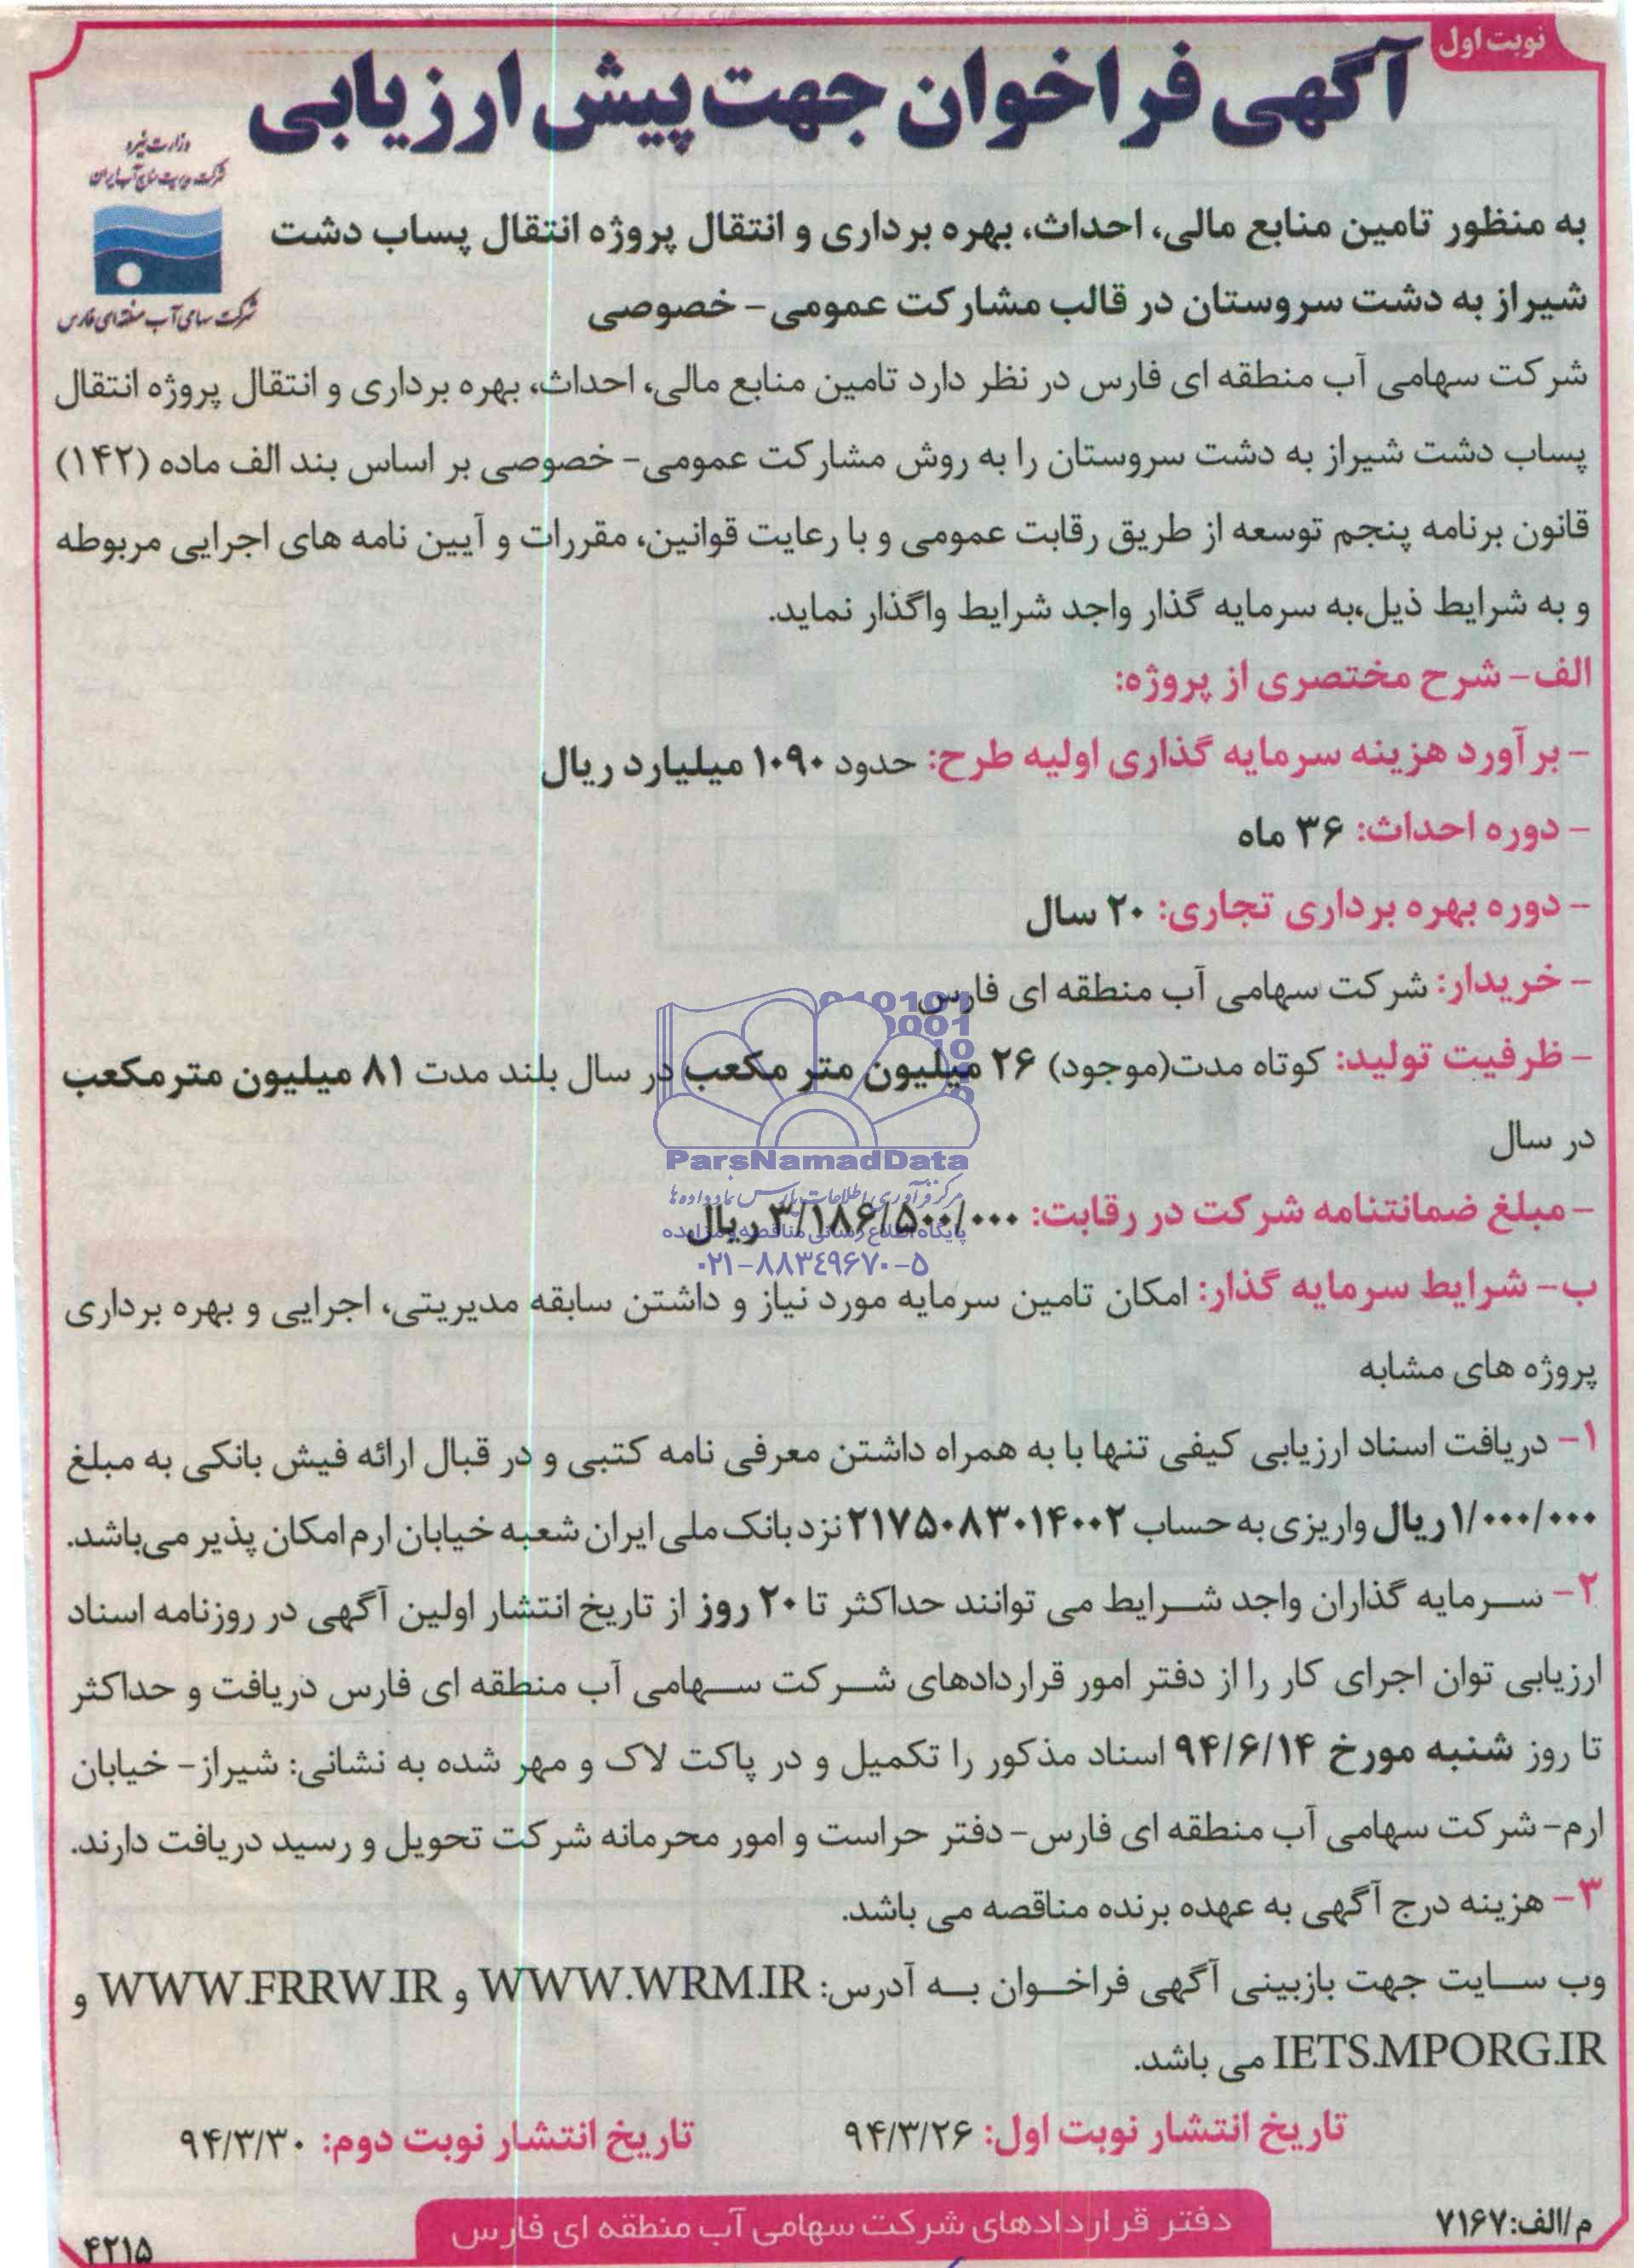 نوبت اول
آگهی فراخوان جهت پیش ارزیابی
وزارت نیرو
شرکت مدیریت منابع آب ایران
شرکت سهامی آب منطقه‌ای فارس
به منظور تامین منابع مالی، احداث، بهره برداری و انتقال پروژه انتقال پساب دشت
شیراز به دشت سروستان در قالب مشارکت عمومی - خصوصی
شرکت سهامی آب منطقه ای فارس در نظر دارد تامین منابع مالی، احداث، بهره برداری و انتقال پروژه انتقال
پساب دشت شیراز به دشت سروستان را به روش مشارکت عمومی- خصوصی بر اساس بند الف ماده (۱۴۲)
قانون برنامه پنجم توسعه از طریق رقابت عمومی و با رعایت قوانین، مقررات و آیین نامه های اجرایی مربوطه
و به شرایط ذیل،به سرمایه گذار واجد شرایط واگذار نماید.
الف- شرح مختصری از پروژه:
- برآورد هزینه سرمایه گذاری اولیه طرح: حدود ۱۰۹۰ میلیارد ریال
- دوره احداث: ۳۶ ماه
- دوره بهره برداری تجاری: ۲۰ سال
- خریدار: شرکت سهامی آب منطقه ای فارس
- ظرفیت تولید: کوتاه مدت(موجود) ۲۶ میلیون متر مکعب در سال بلند مدت ۸۱ میلیون مترمکعب
در سال
ParsNamadData
مرکز فرآوری اطلاعات پارس نماد داده ها
- مبلغ ضمانتنامه شرکت در رقابت: ۳/۱۸۶/۵۰۰/۰۰۰ ریال
پایگاه اطلاع رسانی مناقصه و مزایده
۰۲۱-۸۸۳۴۹۶۷۰-۵
ب- شرایط سرمایه گذار: امکان تامین سرمایه مورد نیاز و داشتن سابقه مدیریتی، اجرایی و بهره برداری
پروژه های مشابه
۱- دریافت اسناد ارزیابی کیفی تنها با به همراه داشتن معرفی نامه کتبی و در قبال ارائه فیش بانکی به مبلغ
۱/۰۰۰/۰۰۰ ریال واریزی به حساب ۲۱۷۵۰۸۳۰۱۴۰۰۲ نزد بانک ملی ایران شعبه خیابان ارم امکان پذیر می‌باشد.
۲- سرمایه گذاران واجد شرایط می توانند حداکثر تا ۲۰ روز از تاریخ انتشار اولین آگهی در روزنامه اسناد
ارزیابی توان اجرای کار را از دفتر امور قراردادهای شرکت سهامی آب منطقه ای فارس دریافت و حداکثر
تا روز شنبه مورخ ۹۴/۶/۱۴ اسناد مذکور را تکمیل و در پاکت لاک و مهر شده به نشانی: شیراز- خیابان
ارم- شرکت سهامی آب منطقه ای فارس- دفتر حراست و امور محرمانه شرکت تحویل و رسید دریافت دارند.
۳- هزینه درج آگهی به عهده برنده مناقصه می باشد.
وب سایت جهت بازبینی آگهی فراخوان به آدرس: WWW.WRM.IR و WWW.FRRW.IR و
IETS.MPORG.IR می باشد.
تاریخ انتشار نوبت اول: ۹۴/۳/۲۶ تاریخ انتشار نوبت دوم: ۹۴/۳/۳۰
م/الف:۷۱۶۷
دفتر قراردادهای شرکت سهامی آب منطقه ای فارس
۴۲۱۵